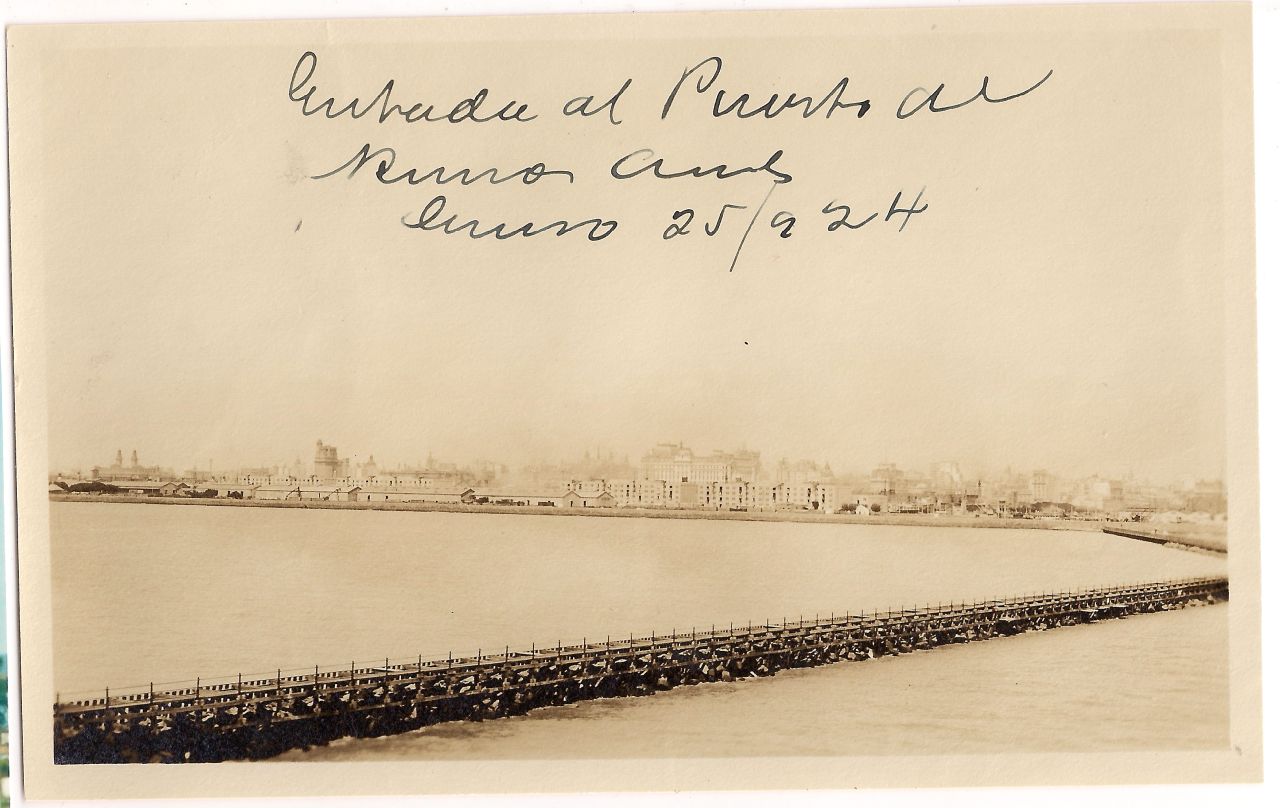 Entrada al Puerto de
Buenos Aires
Enero 25/924